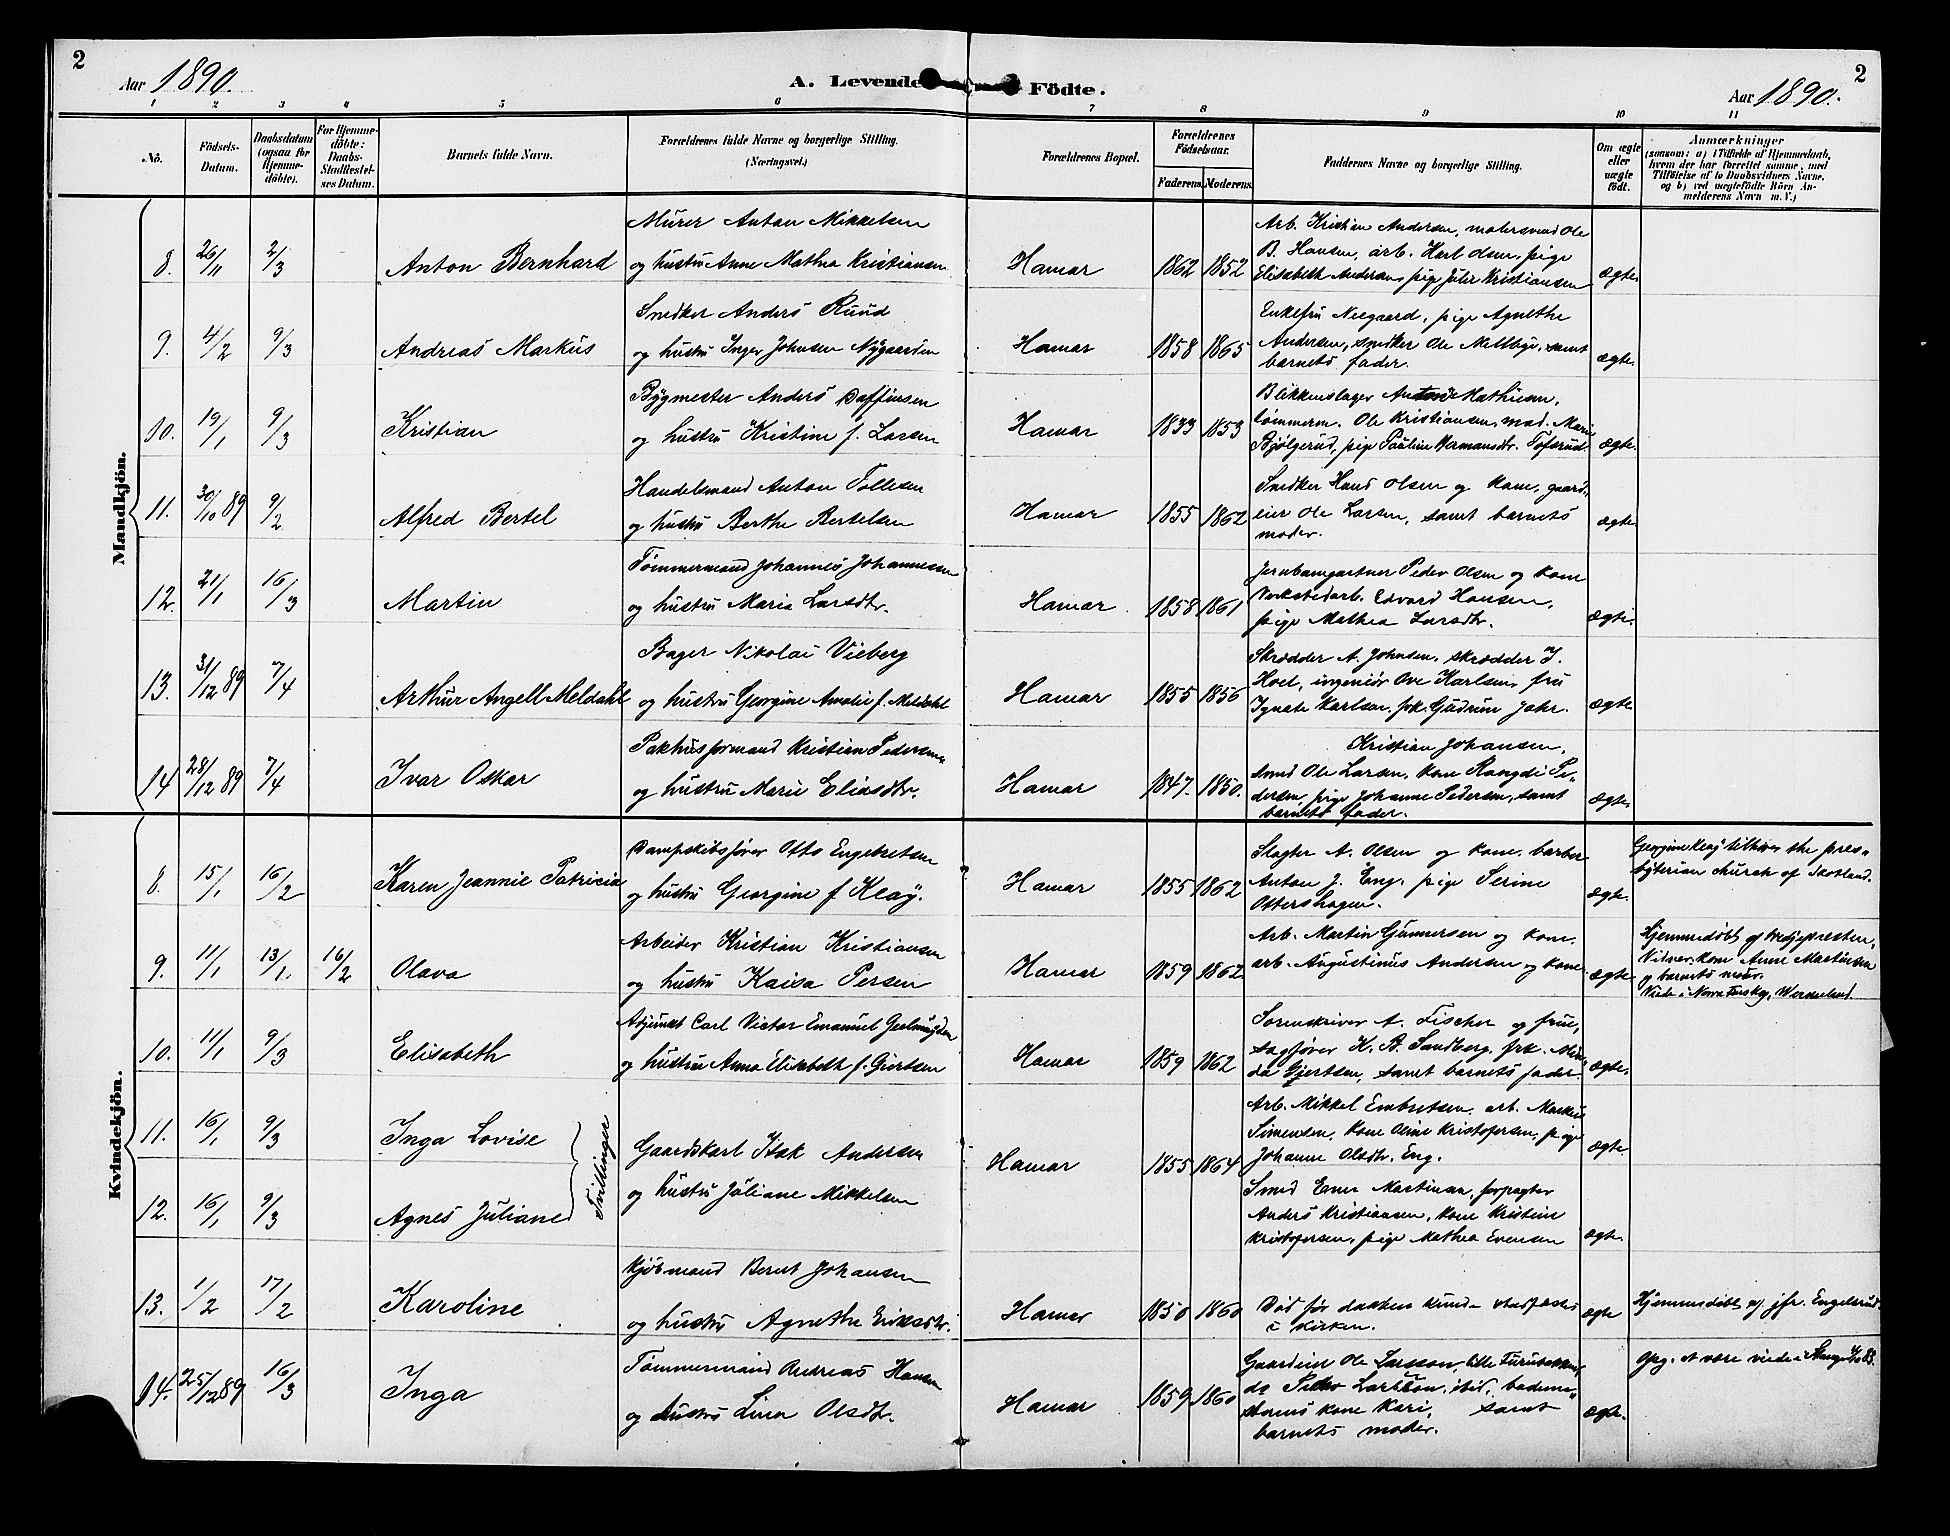 2
Aar 1890.
A. Levende Födte.
Aar 1890.
2
1 2 3 4 5 6 7 8 9 10 11
No.
Födsels-Datum.
Daabsdatum (ogsaa for Hjemme-döbte).
For Hjemme-döbte: Daabs-Stadfæstel-ses Datum.
Barnets fulde Navn.
Forældrenes fulde Navne og borgerlige Stilling.
(Næringsvei.)
Forældrenes Bopæl.
Forældrenes Födselsaar.
Faderens. Moderens.
Faddernes Navne og borgerlige Stilling.
Om ægte eller uægte födt.
Anmærkninger
(saasom: a) i Tilfælde af Hjemmedaab,
hvem der har forrettet samme, med
Tilföielse af to Daabsvidners Navne,
og b) ved uægtefödte Börn An-
melderens Navn m.V.)
Mandkjön.
8. 26/11 2/3 Anton Bernhard
Murer Anton Mikkelsen
og hustru Anne Mathea Kristiansen
Hamar 1862 1852
Arb. Kristian Andersen, malersvend Ole
B. Hansen, arb. Karl Olsen, pige
Elisabeth Andersen, pige Julie Kristiansen
ægte.
9. 4/2 9/3 Andreas Markus
Snedker Anders Ruud
og hustru Inger Johnsen Nygaarden
Hamar 1858 1865
Enkefru Neegaard, pige Agnethe
Andersen, snedker Ole Melbye, samt
barnets fader.
ægte.
10. 19/1 9/3 Kristian
Bygmester Anders Daffinsen
og hustru Kristine f. Larsen
Hamar 1833 1853
Blikkenslager Mathiesen,
tømmerm. Ole Kristiansen, mad. Marie
Bjölgerud, pige Pauline Hermansdtr. Tofsrud
ægte.
11. 30/10 89 9/2 Alfred Bertel
Handelsmand Anton Tollesen
og hustru Berthe Bertelsen
Hamar 1855 1862
Snedker Hans Olsen og kone, gaard-
eier Ole Larsen, samt barnets
moder.
ægte.
12. 21/1 16/3 Martin
Tømmermand Johannes Johannesen
og hustru Maria Larsdtr.
Hamar. 1858 1861
Jernbamgartner Peder Olsen og kone
Verkstedarb. Edvard Hansen,
pige Mathea Larsdtr.
ægte.
13. 31/12 89 7/4 Arthur Angell Meldahl
Bager Nikolai Vieberg
og hustru Georgine Amalie f. Meldahl
Hamar 1855 1856
Skrædder A. Johnsen, skrædder J.
Hoel, ingeniör Ove Karlsen, fru
Karlsen, frk. Gudrun Jahr.
ægte.
14 28/12 89 7/4 Ivar Oskar
Pakhusformand Kristian Pedersen
og hustru Marie Eliasdtr.
Hamar 1847. 1850.
Kristian Johansen,
smed Ole Larsen, kone Rangdi Pe-
dersen, pige Johanne Pedersen, samt
barnets fader.
ægte.
Kvindekjön.
8. 15/1 16/2 Karen Jeannie Patricia
Dampskibsfører Otto Engebretsen
og hustru Georgine f Keay.
Hamar 1855 1862
Slagter A. Olsen og kone, barber
Anton J. Eng, pige Serine
Ottershagen.
ægte.
Georgine Keay tilhører the pres-
byterian church of Skotland.
9. 11/1 13/1. 16/2 Olava
Arbeider Kristian Kristiansen
og hustru Kaisa Persen
Hamar 1859 1862
Arb. Martin Gunnersen og kone,
arb. Augustinus Andersen og kone
ægte.
Hjemmedöbt af
Vidner: kone Anne Martinsen
og barnets
Viede i Norra Finskog, Wermland.
10. 11/1 9/3 Elisabeth
Adjunkt Carl Victor Emanuel Geelmuyden
og hustru Anna Elisabeth f. Gjertsen
Hamar 1859 1862
Sorenskriver A. Fischer og frue,
sagfører H. B. Sandberg, frk. Min-
da Gjertsen, samt barnets fader.
ægte.
11. 16/1 9/3 Inga Lovise
12. 16/1 9/3 Agnes Juliane
Tvillinger
Gaardskarl Isak Andersen
og hustru Juliane Mikkelsen
Hamar 1855 1864
Arb. Mikkel Embretsen, arb. Markus
Simensen, kone Oline Kristofersen, pige
Johanne Olsdtr. Eng.
ægte.
Smed Martinsen, forpagter
Anders Kristiansen, kone Kristine
Kristofersen, pige Mathea Evensen
ægte.
13. 1/2 17/2 Karoline
Kjöbmand Bernt Johansen
og hustru Agnethe Eriksdtr.
Hamar 1850 1860
Död før daaben kunde stadfæstes
i kirken.
ægte
Hjemmedöbt af jfr. Engelsrud.
14. 25/12 89 16/3 Inga
Tömmermand Andreas Hansen
og hustru Lina Olsdtr.
Hamar 1859 1860
Gaardeier Ole Larsson, Lille Furubakken,
Peder Larsson, ibid, bademe-
sterens kone Kari, samt
barnets moder.
ægte.
Opg. at være viede i Stange